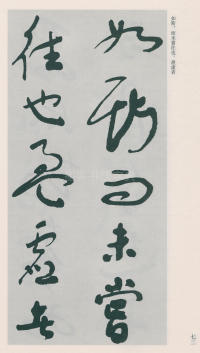 如斯，而未嘗往也；盈虛者
如斯而未嘗
往也盈虛者